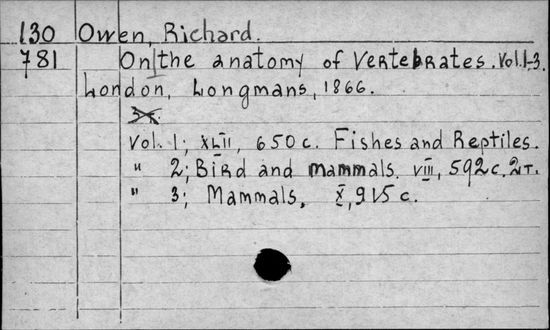 130 Owen, Richard.
781 On the anatomy of vertebrates. Vol. 1-3.
London, Longmans, 1866.
Vol. 1; XLII, 650 c. Fishes and Reptiles.
" 2; Bird and mammals. VIII, 592 c. 2 т.
" 3; Mammals, X, 915 c.